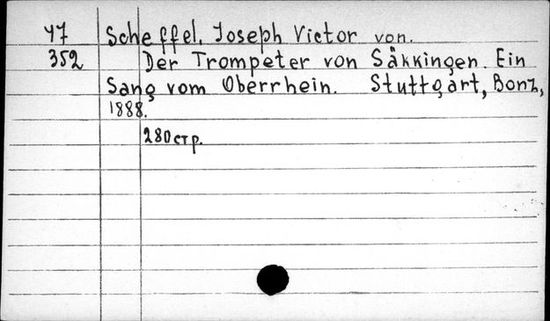 47 Scheffel, Joseph Victor von.
352 Der Trompeter von Säkkingen. Ein
Sang vom Oberrhein. Stuttgart, Bonz,
1888.
280 стр.